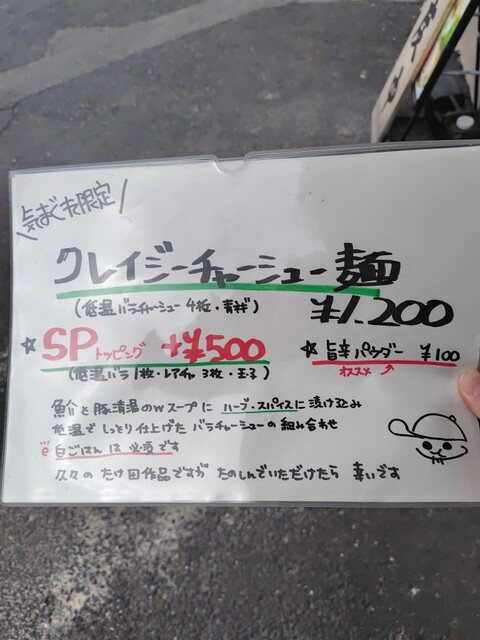 気まぐれ限定
クレイジーチャーシュー麺
(低温バラチャーシュー4枚・青ネギ) ¥1.200
☆SPトッピング +¥500
(低温バラ1枚・レアチャ3枚・玉子)
☆旨辛パウダー ¥100
オススメ
魚介と豚清湯のWスープに ハーブ・スパイスに漬け込み
低温でしっとり仕上げた バラチャーシューの組み合わせ
白ごはんは必須です
久々の たけ田作品ですが たのしんでいただけたら 幸いです